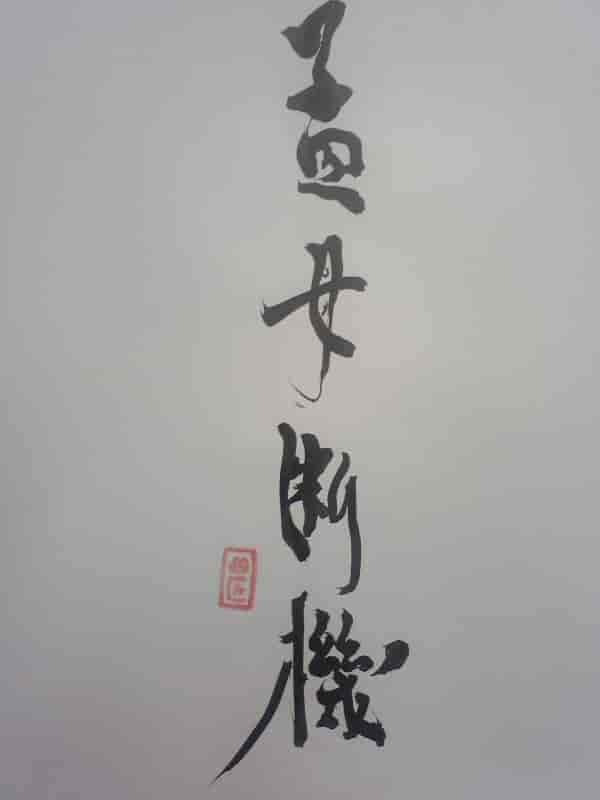 孟母断機